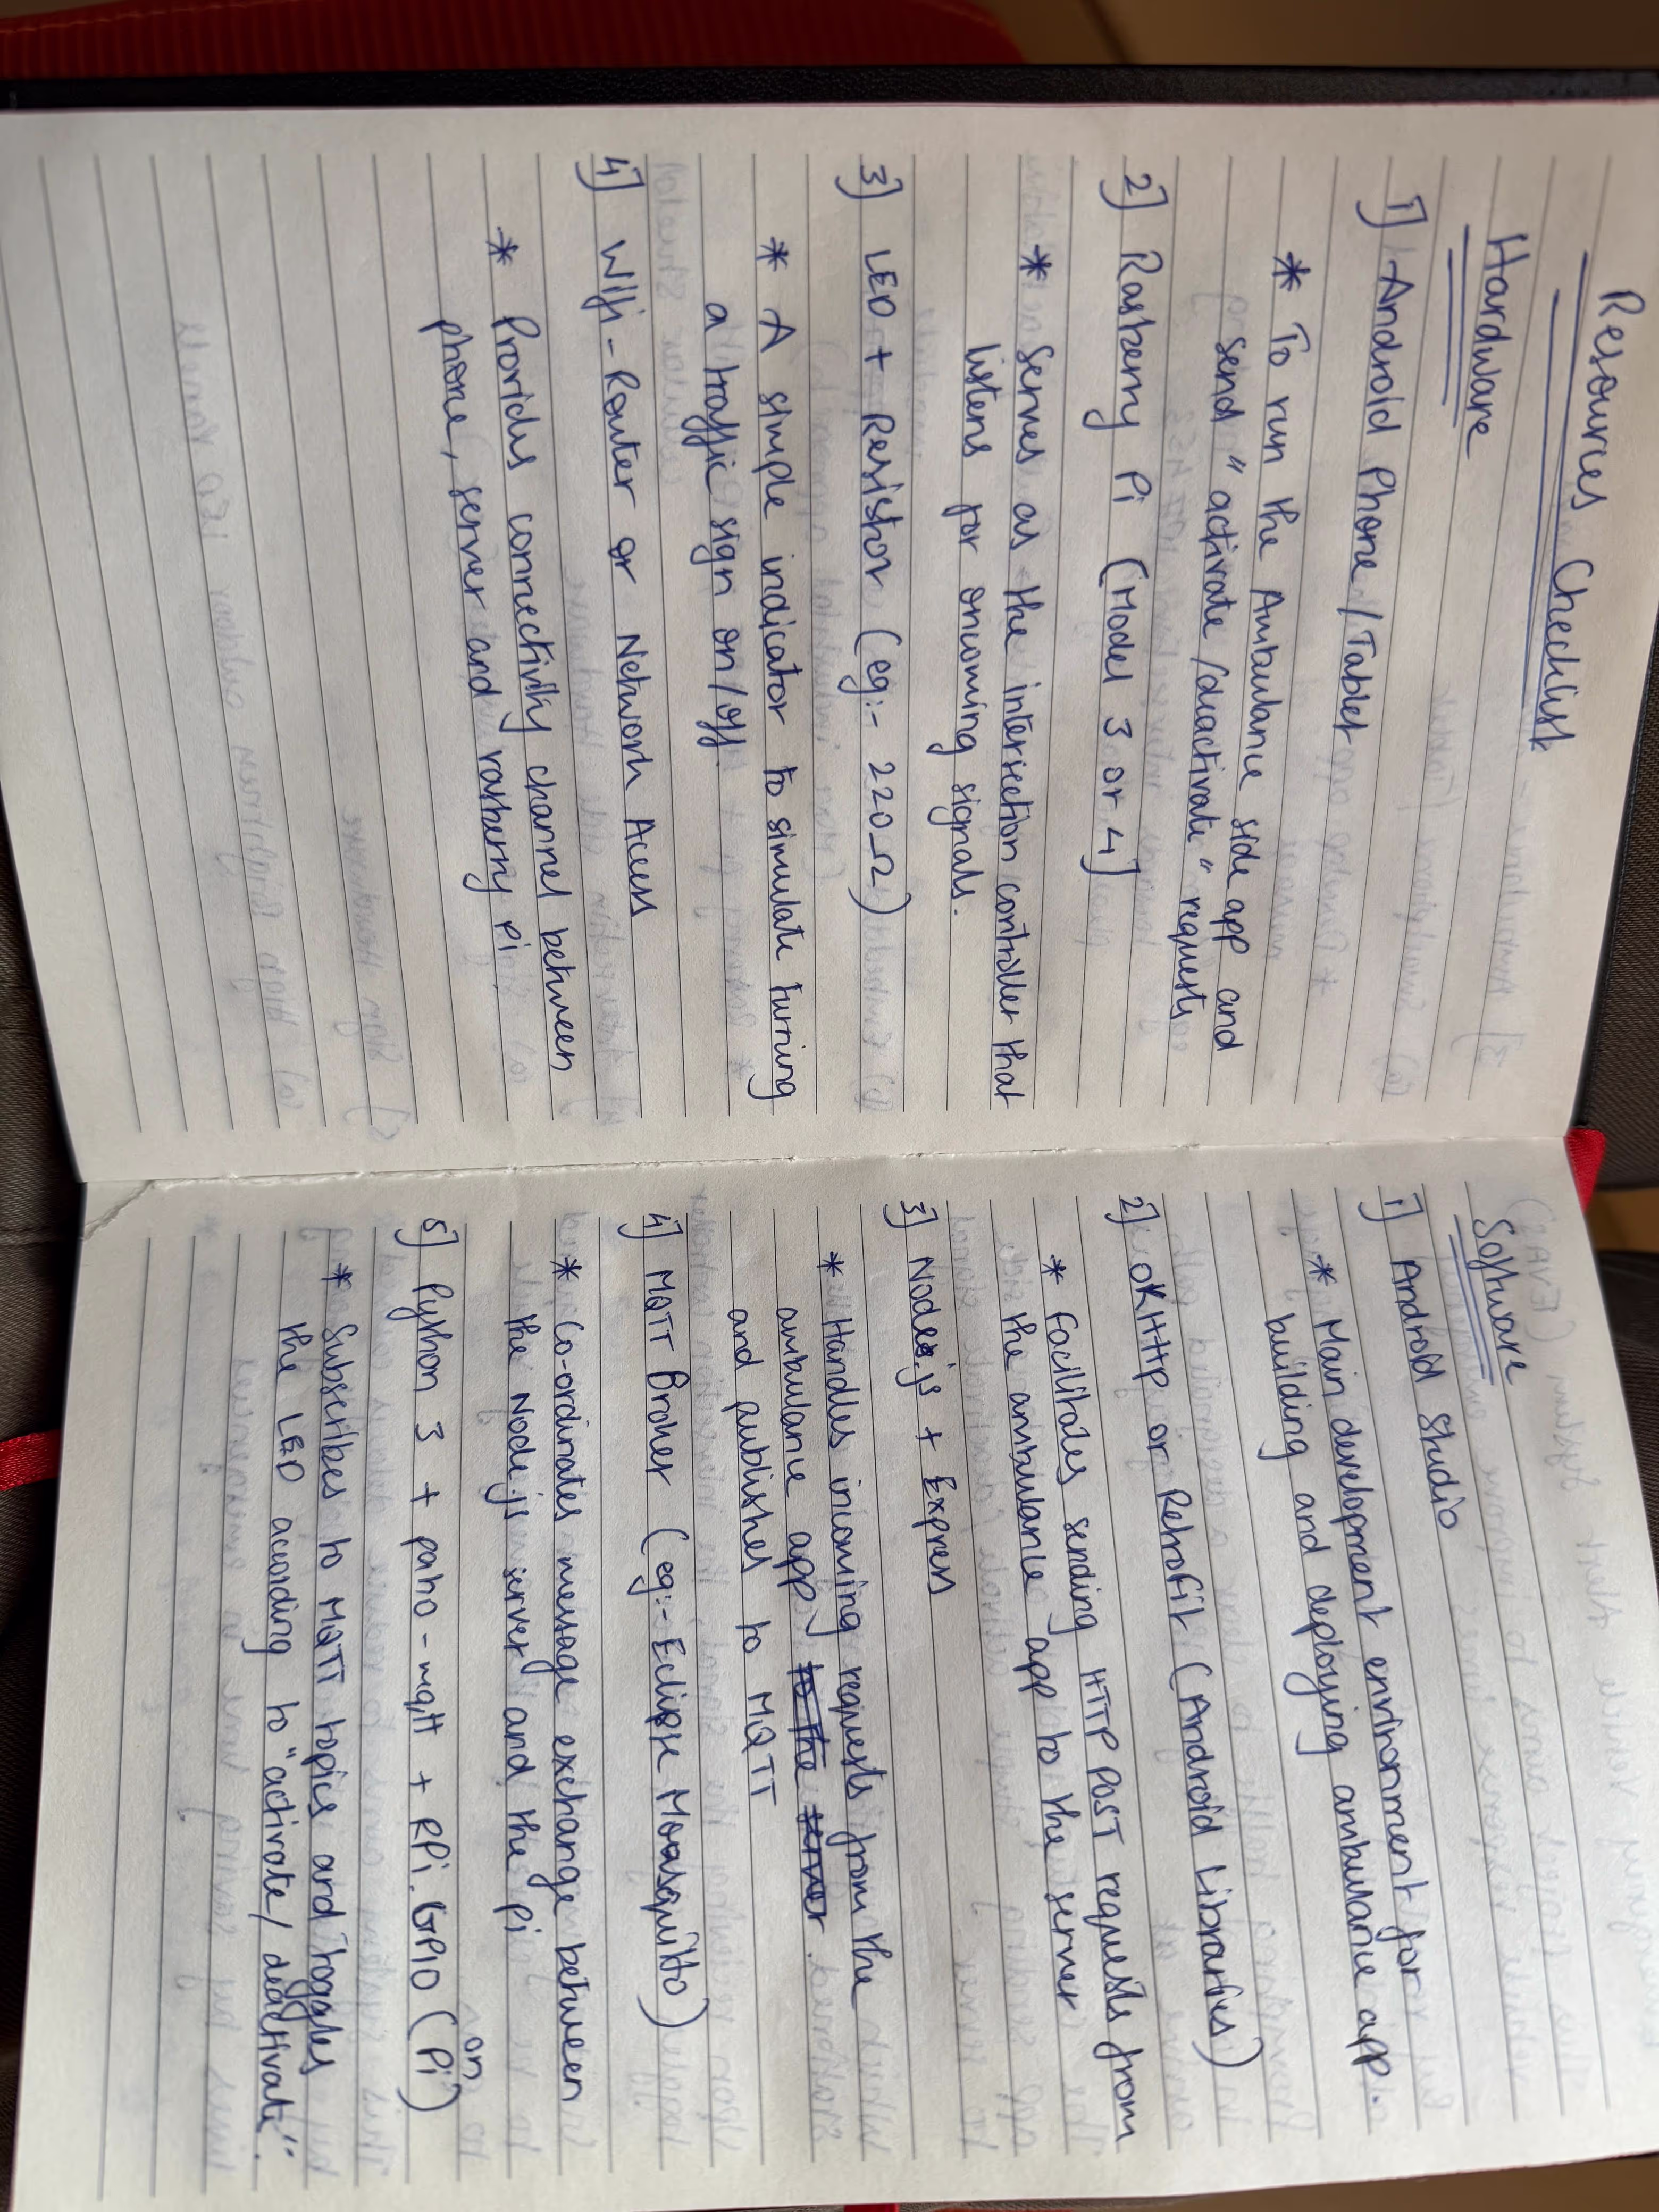 Resources Checklist
Hardware
1] Android Phone/Tablet
* To run the Ambulance side app and
send "activate/deactivate" requests
2] Rasberry Pi (Model 3 or 4]
* Serves as the intersection controller that
listens for oncoming signals.
3] LED + Resistor (eg:- 220Ω)
* A simple indicator to simulate turning
a traffic sign on/off.
4] Wifi-Router or Network Acess
* Provides connectivity channel between
phone, server and rasberry Pi
Software
1] Android Studio
* Main development environment for
building and deploying ambulance app.
2] OKHttp or Retrofit (Android Libraries)
* Facilitates sending HTTP POST requests from
the ambulance app to the server
3] Node.js + Express
* Handles incoming requests from the
ambulance app to the server.
and publishes to MQTT
4] MQTT Broker (eg:- Eclipse Moasquitto)
* Co-ordinates message exchange between
the Node.js server and the Pi
5] Python 3 + paho-mqtt + RPi.GPIO (on Pi)
* Subscribes to MQTT topics and toggles
the LED according to "activate/deactivate".